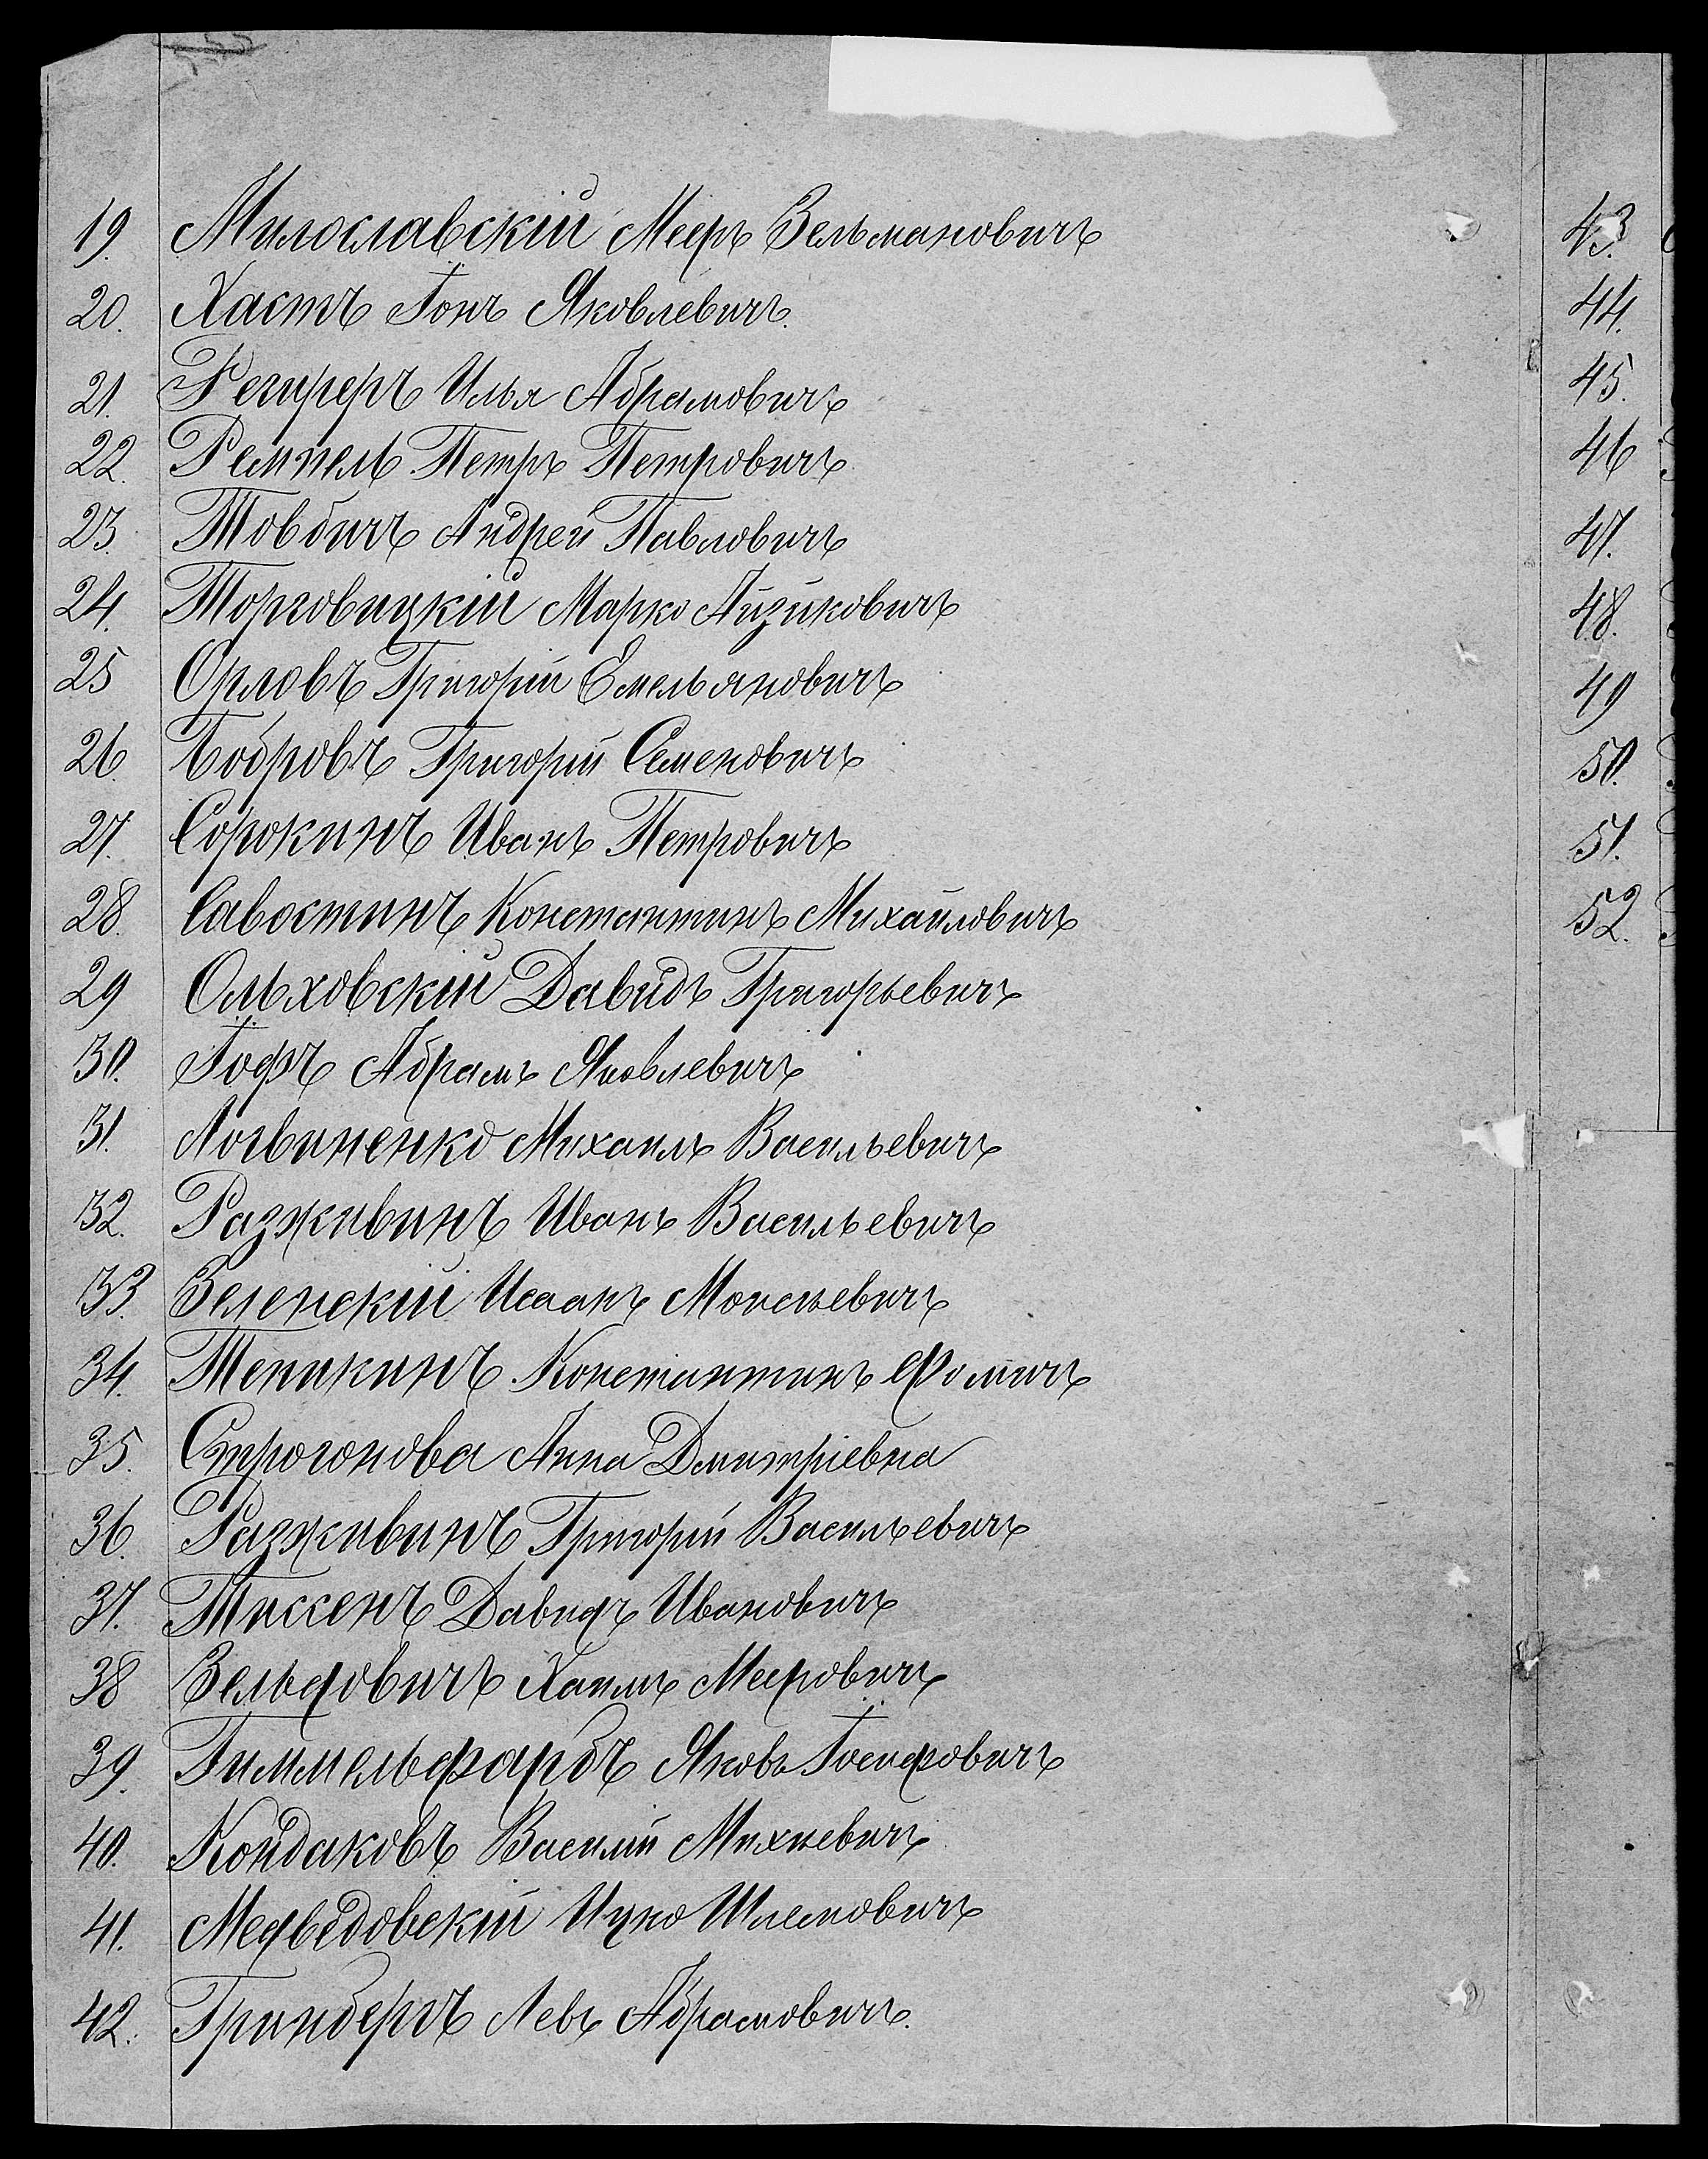 19. Милославскій Мееръ Зельмановичъ
20. Хастъ Іонъ Яковлевичъ.
21. Региреръ Илья Абрамовичъ
22. Ремпель Петръ Петровичъ
23. Товбичъ Андрей Павловичъ
24. Торговицкій Марко Айзиковичъ
25 Орловъ Григорій Емельяновичъ
26. Бобровъ Григорій Семеновичъ
27. Сорокинъ Иванъ Петровичъ
28. Савостинъ Константинъ Михайловичъ
29 Ольховскій Давидъ Григорьевичъ
30. Іофъ Абрамъ Яковлевичъ
31. Логвиненко Михаилъ Васильевичъ
32. Разживинъ Иванъ Васильевичъ
33. Зеленскій Исаакъ Моисеевичъ
34. Тепикинъ Константинъ Фомичъ
35. Строгонова Анна Дмитріевна
36. Разживинъ Григорій Васильевичъ
37. Тиссенъ Давидъ Ивановичъ
38 Зельдовичъ Хаимъ Мееровичъ
39. Гиммельфарбъ Яковъ Іосифовичъ
40. Кондаковъ Василій Михеевичъ
41. Медвѣдовскій Ицко Шлемовичъ
42. Гринбергъ Левъ Абрамовичъ.
43.
44.
45.
46
47.
48.
49
50.
51.
52.